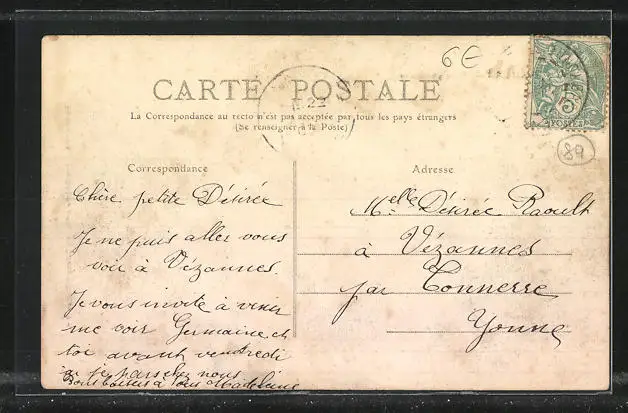 6€
CARTE POSTALE
22
La Correspondance au recto n'est pas acceptée par tous les pays étrangers
(Se renseigner à la Poste)
5c
POSTES
89
Correspondance
Chère petite Désirée
Je ne puis aller vous
voir à Vézannes.
Je vous invite à venir
me voir Germaine et
toi avant vendredi
je pars chez nous
Bons baisers à tous Madeleine
Adresse
Melle Désirée Raoult
à Vézannes
par Tonnerre
Yonne